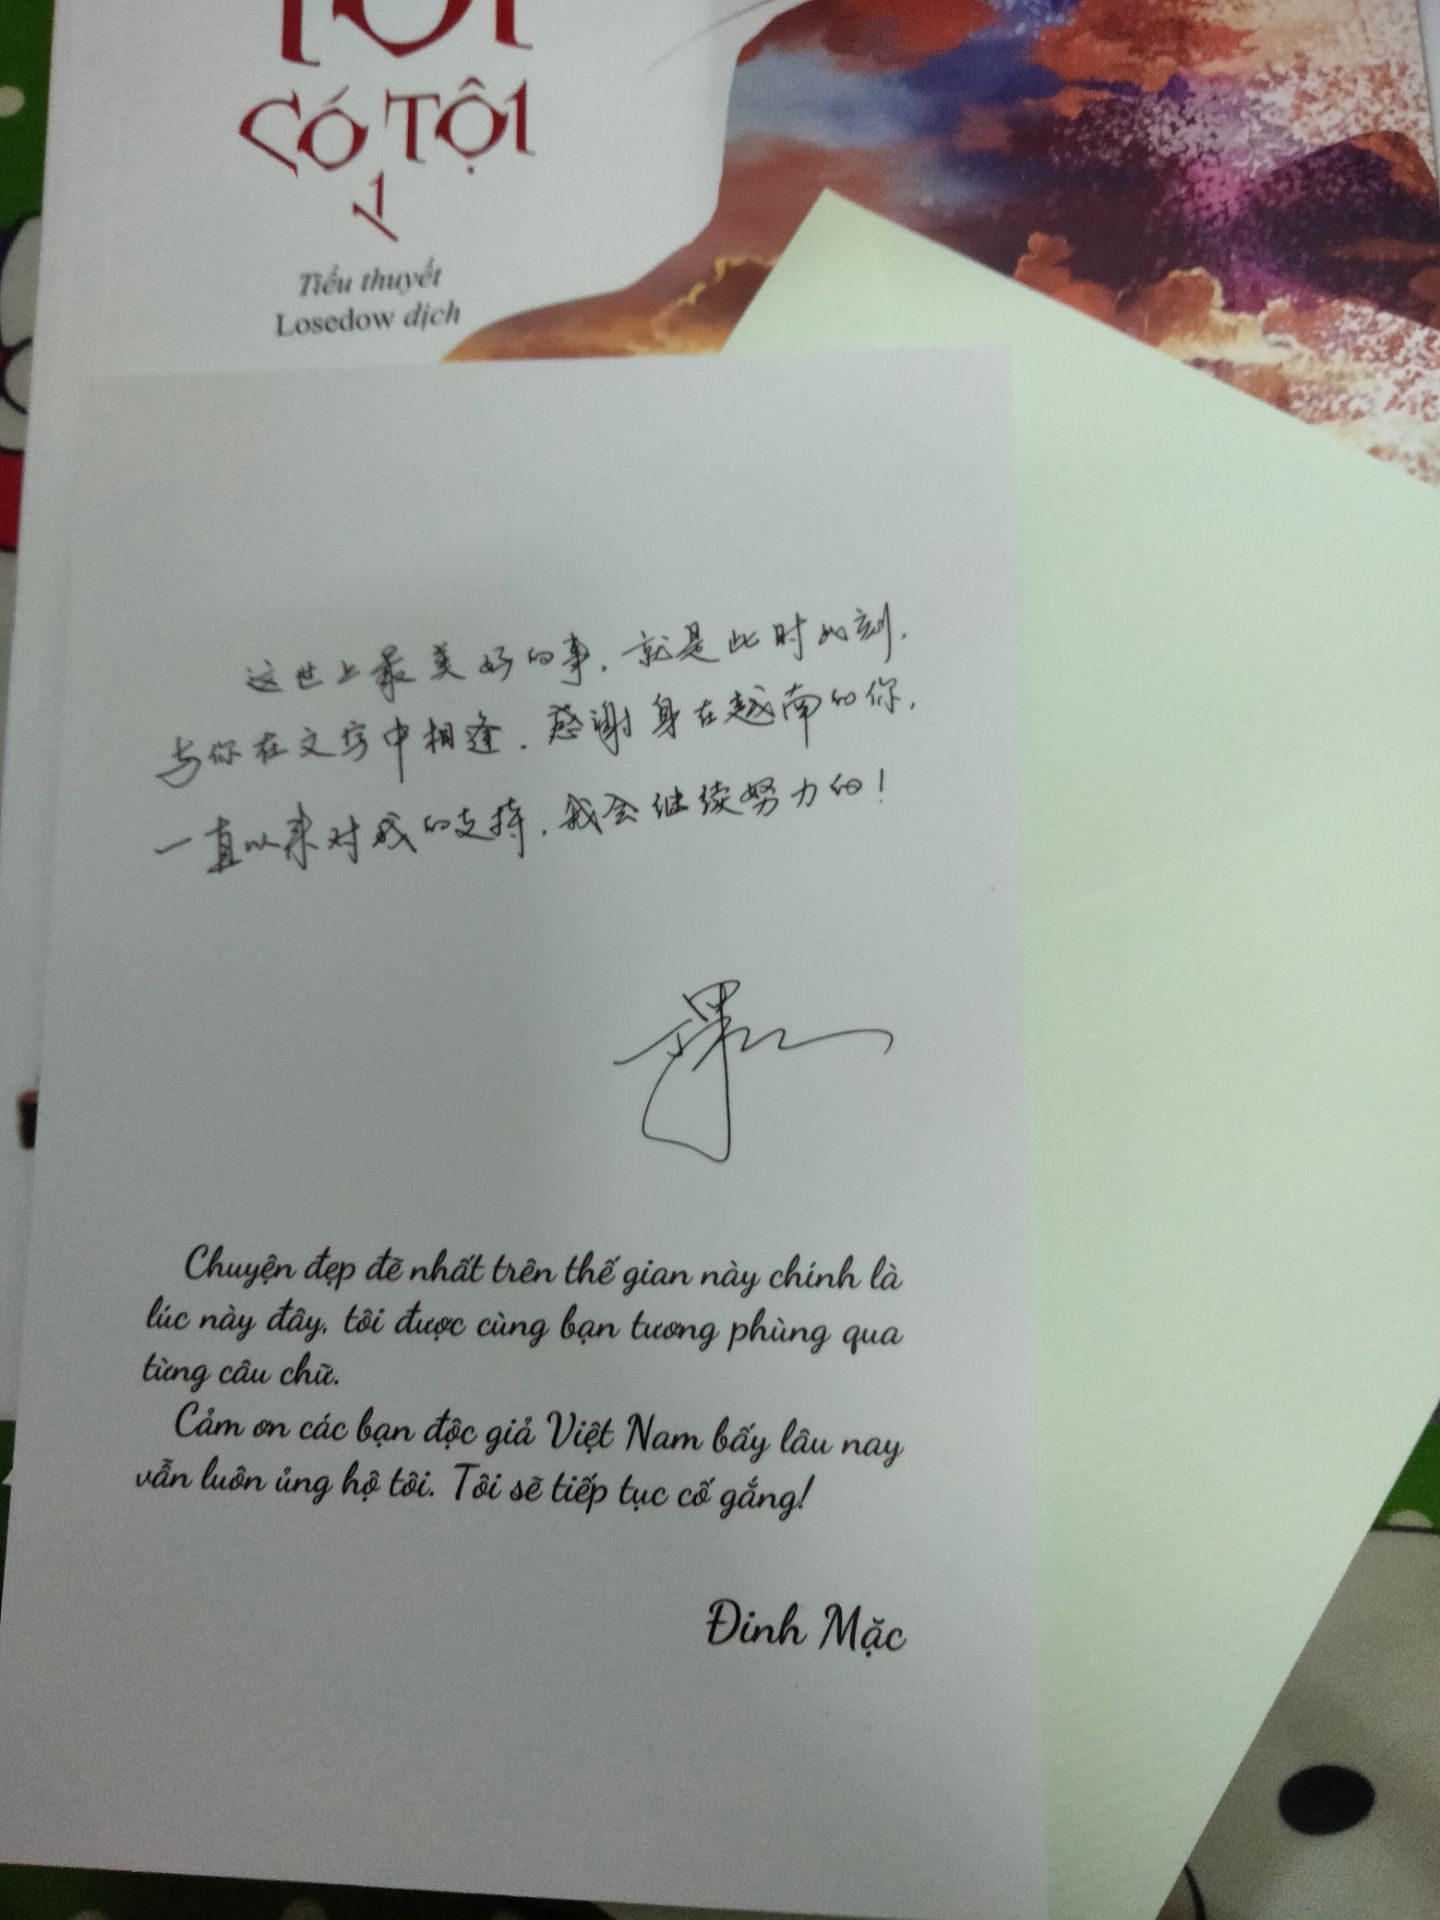 TÔI
CÓ TỘI
1
Tiểu thuyết
Losedow dịch
这世上最美好的事，就是此时此刻，
与你在文字中相逢．感谢身在越南的你，
一直以来对我的支持．我会继续努力的！
Chuyện đẹp đẽ nhất trên thế gian này chính là
lúc này đây, tôi được cùng bạn tương phùng qua
từng câu chữ.
Cảm ơn các bạn độc giả Việt Nam bấy lâu nay
vẫn luôn ủng hộ tôi. Tôi sẽ tiếp tục cố gắng!
Đinh Mặc